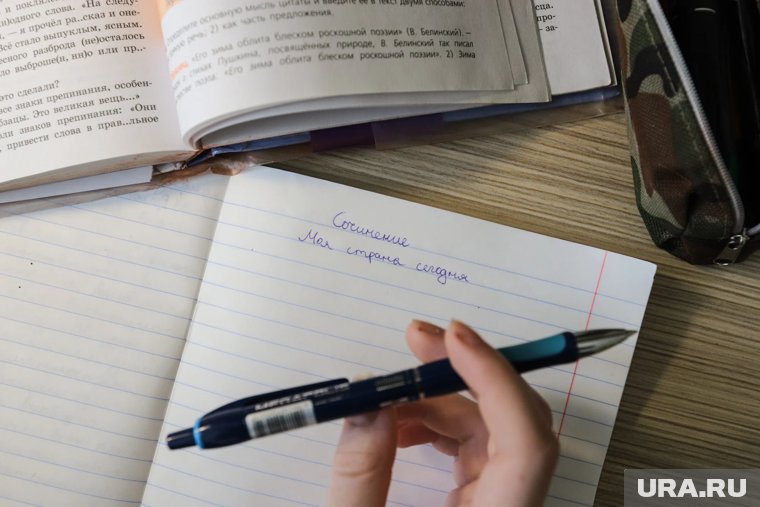 поклялся. «На следу-
индового слова.
— я прочёл ра..сказ и оне-
Всё стало выпуклым, ясным.
есного разброда (не)осталось
ло выброше(н, нн)о или пр..-
это сделали?
все знаки препинания, особен-
бзацы. Это великая вещь...»
ли знаков препинания: «Они
привести слова в прав..льное
основную мысль цитаты и введите её в текст двумя способами:
речь; 2) как часть предложения.
«Его зима облита блеском роскошной поэзии» (В. Белинский). —
стихах Пушкина, посвящённых природе, В. Белинский так писал
поэта: «Его зима облита блеском роскошной поэзии». 2) Зима
Сочинение
Моя страна сегодня
URA.RU